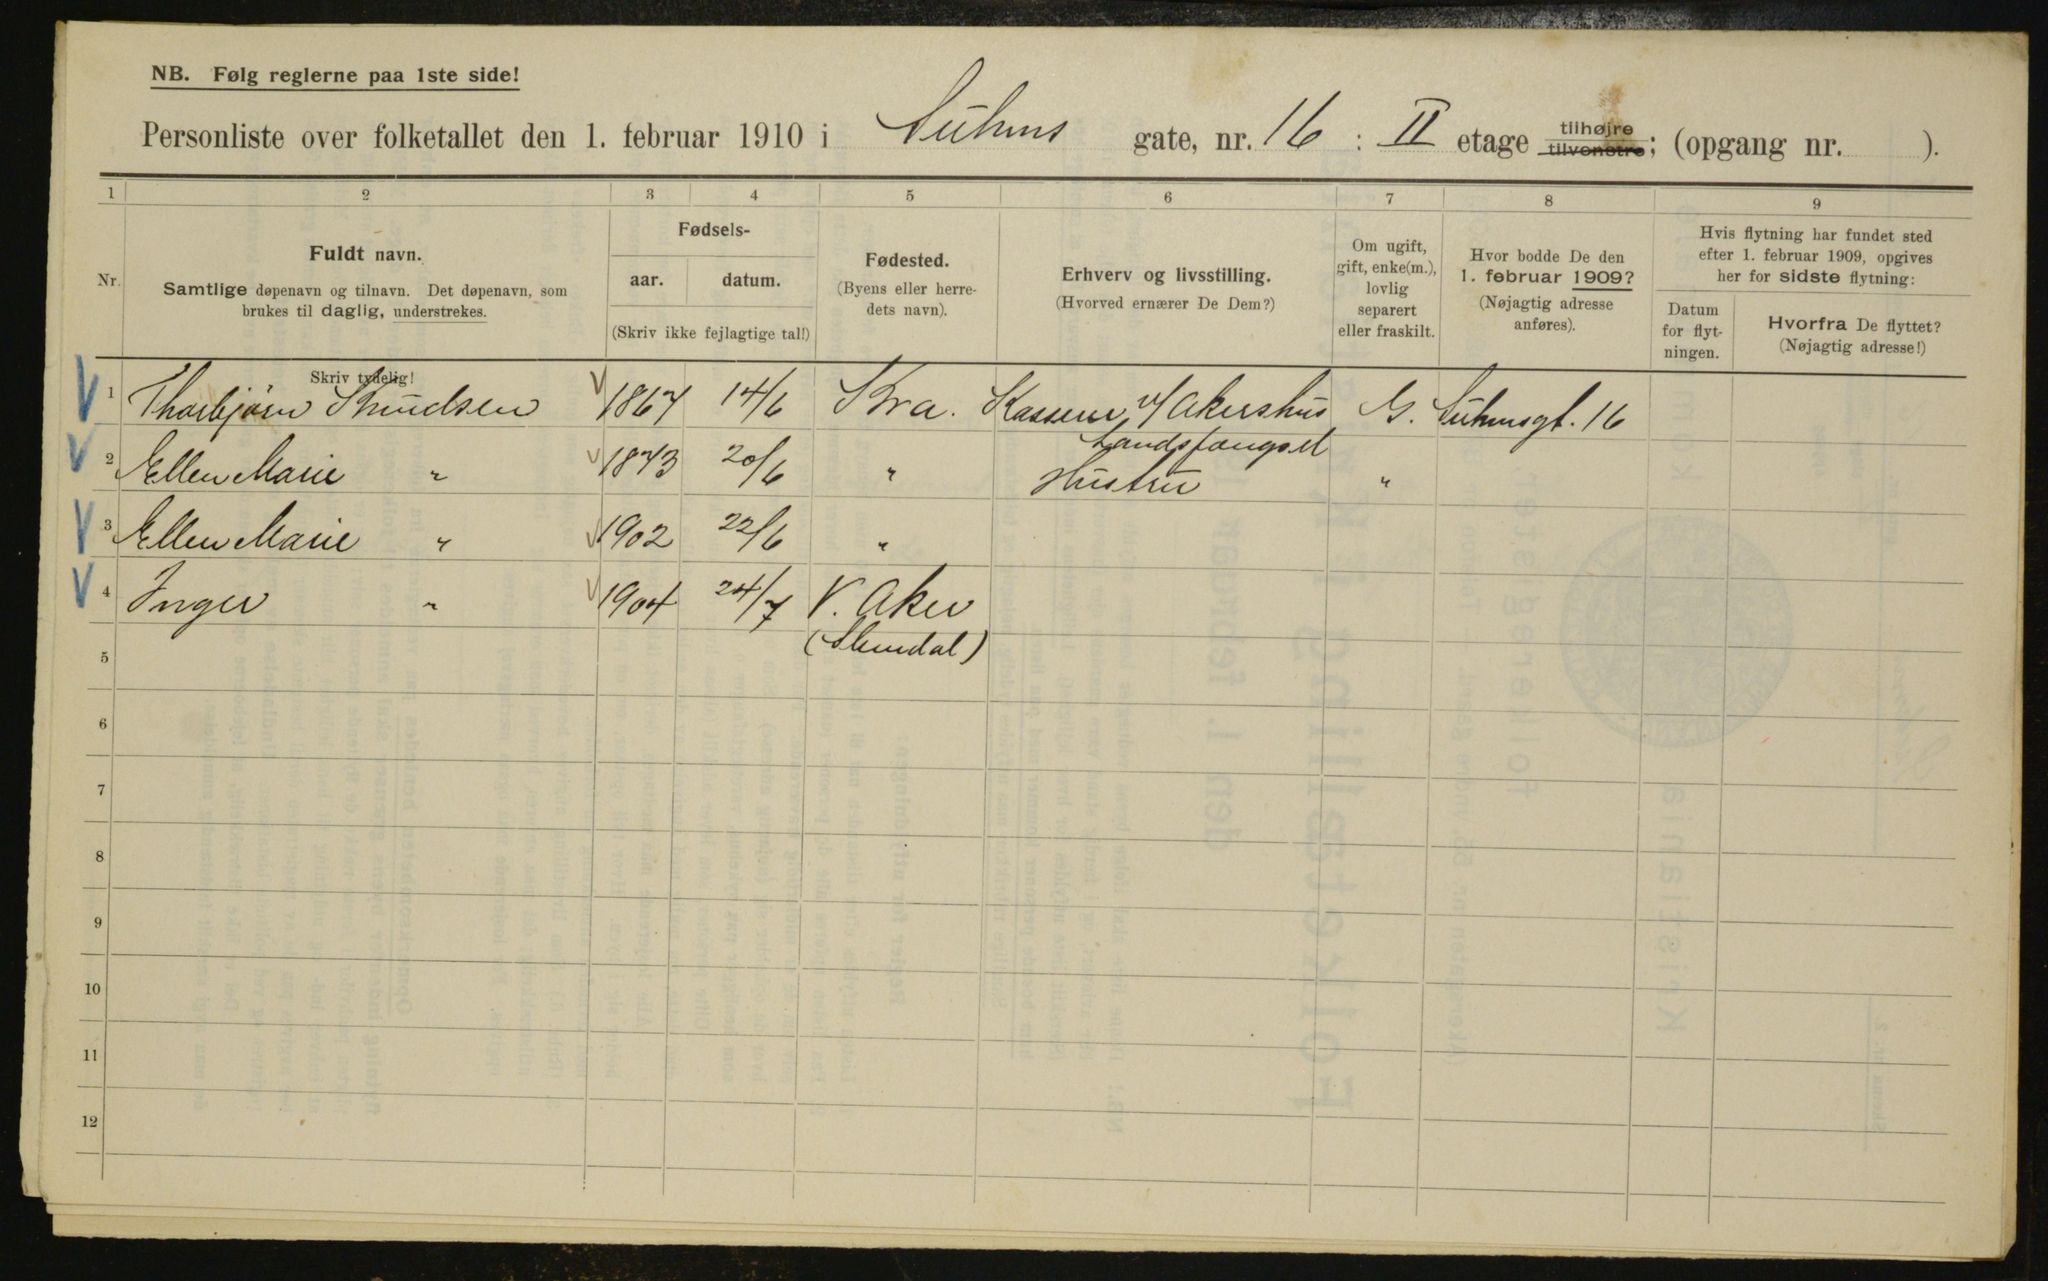 NB. Følg reglerne paa 1ste side!
Personliste over folketallet den 1. februar 1910 i Suhms gate, nr. 16 : II etage tilhøjre tilvenstre; (opgang nr. ).
1 2 3 4 5 6 7 8 9
Nr.
Fuldt navn.
Samtlige døpenavn og tilnavn. Det døpenavn, som
brukes til daglig, understrekes.
Skriv tydelig!
Fødsels-
aar. datum.
(Skriv ikke fejlagtige tal!)
Fødested.
(Byens eller herre-
dets navn).
Erhverv og livsstilling.
(Hvorved ernærer De Dem?)
Om ugift,
gift, enke(m.),
lovlig
separert
eller fraskilt.
Hvor bodde De den
1. februar 1909?
(Nøjagtig adresse
anføres).
Hvis flytning har fundet sted
efter 1. februar 1909, opgives
her for sidste flytning:
Datum
for flyt-
ningen.
Hvorfra De flyttet?
(Nøjagtig adresse!)
1 Thorbjørn Knudsen 1867 14/6 Kra. Kasserer v/ Akershus G. Suhmsgt. 16
Landsfængsel
2 Ellen Marie " 1873 20/6 " Hustru "
3 Ellen Marie " 1902 22/6 "
4 Inger " 1904 24/7 V. Aker
(Slemdal)
5
6
7
8
9
10
11
12